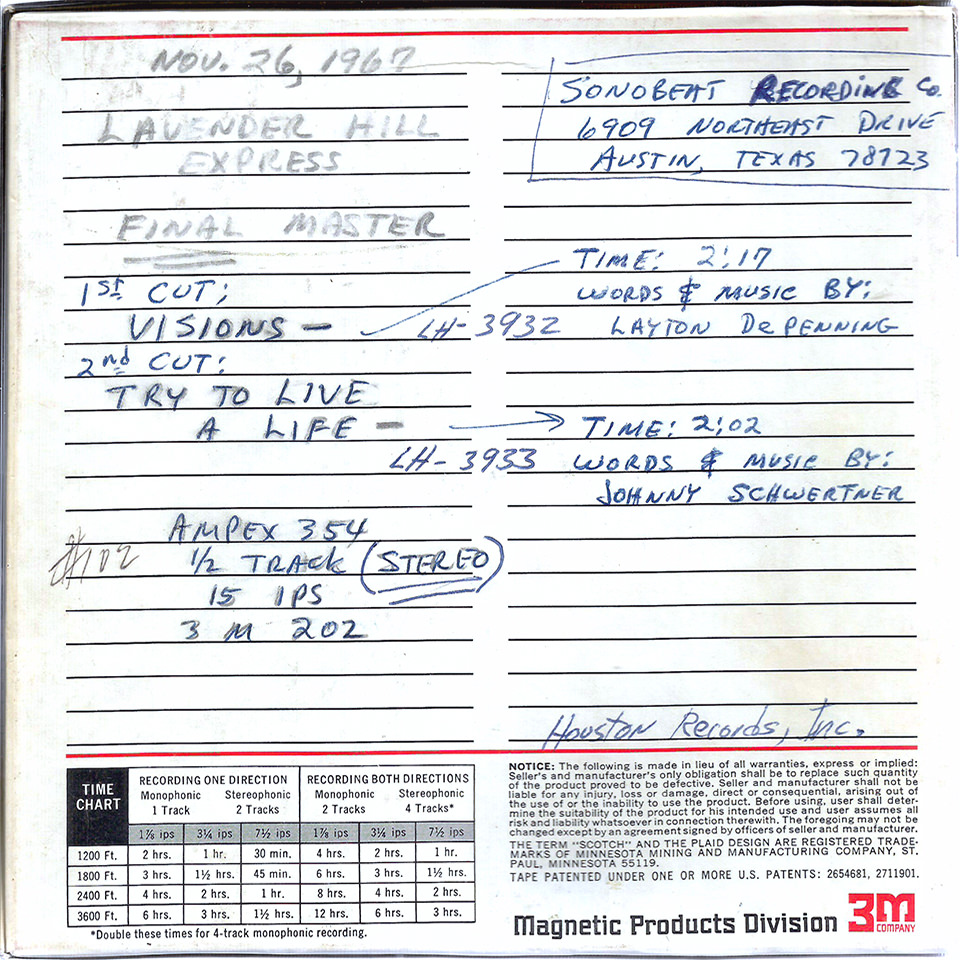 NOV. 26, 1967
LAVENDER HILL
EXPRESS
FINAL MASTER
1ST CUT:
VISIONS —
LH-3932
2nd CUT:
TRY TO LIVE
A LIFE —
LH-3933
AMPEX 354
#102
1/2 TRACK (STEREO)
15 IPS
3M 202
SONOBEAT RECORDING Co.
6909 NORTHEAST DRIVE
AUSTIN, TEXAS 78723
TIME: 2:17
WORDS & MUSIC BY:
LAYTON DePENNING
TIME: 2:02
WORDS & MUSIC BY:
JOHNNY SCHWERTNER
Houston Records, Inc.
TIME CHART
RECORDING ONE DIRECTION RECORDING BOTH DIRECTIONS
Monophonic Stereophonic Monophonic Stereophonic
1 Track 2 Tracks 2 Tracks 4 Tracks*
1⅞ ips 3¾ ips 7½ ips 1⅞ ips 3¾ ips 7½ ips
1200 Ft. 2 hrs. 1 hr. 30 min. 4 hrs. 2 hrs. 1 hr.
1800 Ft. 3 hrs. 1½ hrs. 45 min. 6 hrs. 3 hrs. 1½ hrs.
2400 Ft. 4 hrs. 2 hrs. 1 hr. 8 hrs. 4 hrs. 2 hrs.
3600 Ft. 6 hrs. 3 hrs. 1½ hrs. 12 hrs. 6 hrs. 3 hrs.
*Double these times for 4-track monophonic recording.
NOTICE: The following is made in lieu of all warranties, express or implied:
Seller's and manufacturer's only obligation shall be to replace such quantity
of the product proved to be defective. Seller and manufacturer shall not be
liable for any injury, loss or damage, direct or consequential, arising out of
the use of or the inability to use the product. Before using, user shall deter-
mine the suitability of the product for his intended use and user assumes all
risk and liability whatsoever in connection therewith. The foregoing may not be
changed except by an agreement signed by officers of seller and manufacturer.
THE TERM "SCOTCH" AND THE PLAID DESIGN ARE REGISTERED TRADE-
MARKS OF MINNESOTA MINING AND MANUFACTURING COMPANY, ST.
PAUL, MINNESOTA 55119.
TAPE PATENTED UNDER ONE OR MORE U.S. PATENTS: 2654681, 2711901.
Magnetic Products Division 3M COMPANY